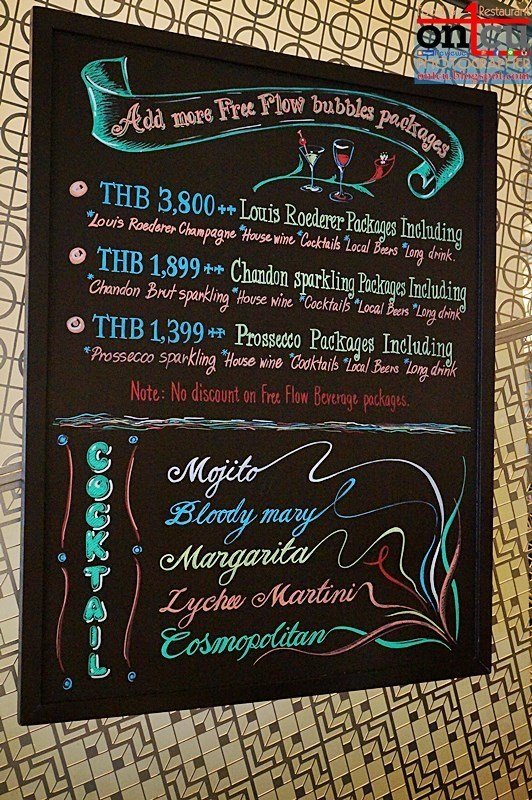 Restaurant
on1cu
PHOTOGRAPHER
on1cu.blogspot.com
Add more Free Flow bubbles packages
THB 3,800++ Louis Roederer Packages Including
*Louis Roederer Champagne *House wine *Cocktails *Local Beers *Long drink.
THB 1,899++ Chandon sparkling Packages Including
*Chandon Brut sparkling *House wine *Cocktails *Local Beers *Long drink
THB 1,399++ Prosecco Packages Including
*Prossecco sparkling *House wine *Cocktails *Local Beers *Long drink
Note: No discount on Free Flow Beverage packages.
COCKTAIL
Mojito
Bloody mary
Margarita
Lychee Martini
Cosmopolitan